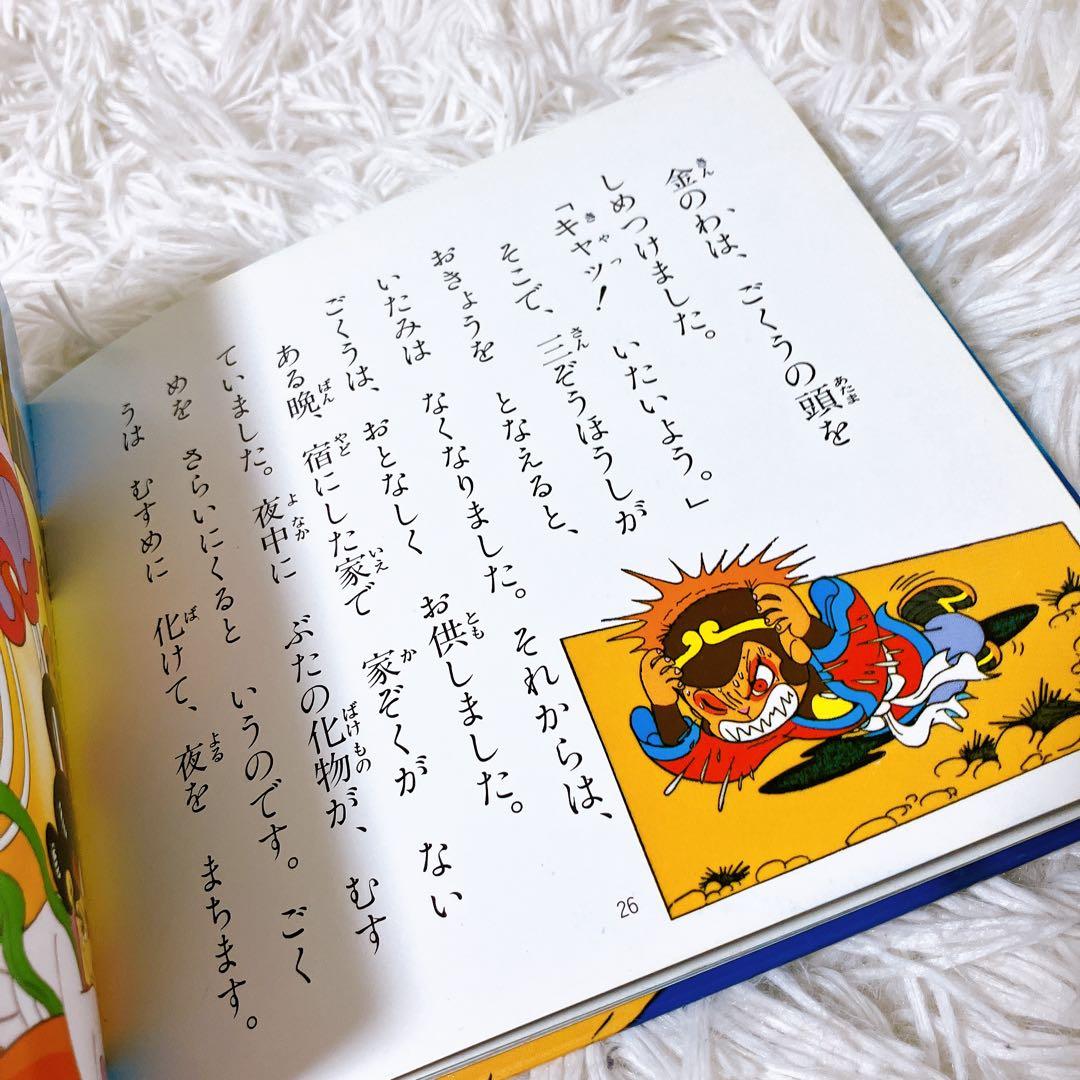 金のわは、ごくうの頭を
しめつけました。
「キャッ！　いたいよう。」
そこで、三ぞうほうしが
おきょうを　となえると、
いたみは　なくなりました。それからは、
ごくうは、おとなしく　お供しました。
ある晩、宿にした家で　家ぞくが　ない
ていました。夜中に　ぶたの化物が、むす
めを　さらいにくると　いうのです。ごく
うは　むすめに　化けて、夜を　まちます。
26